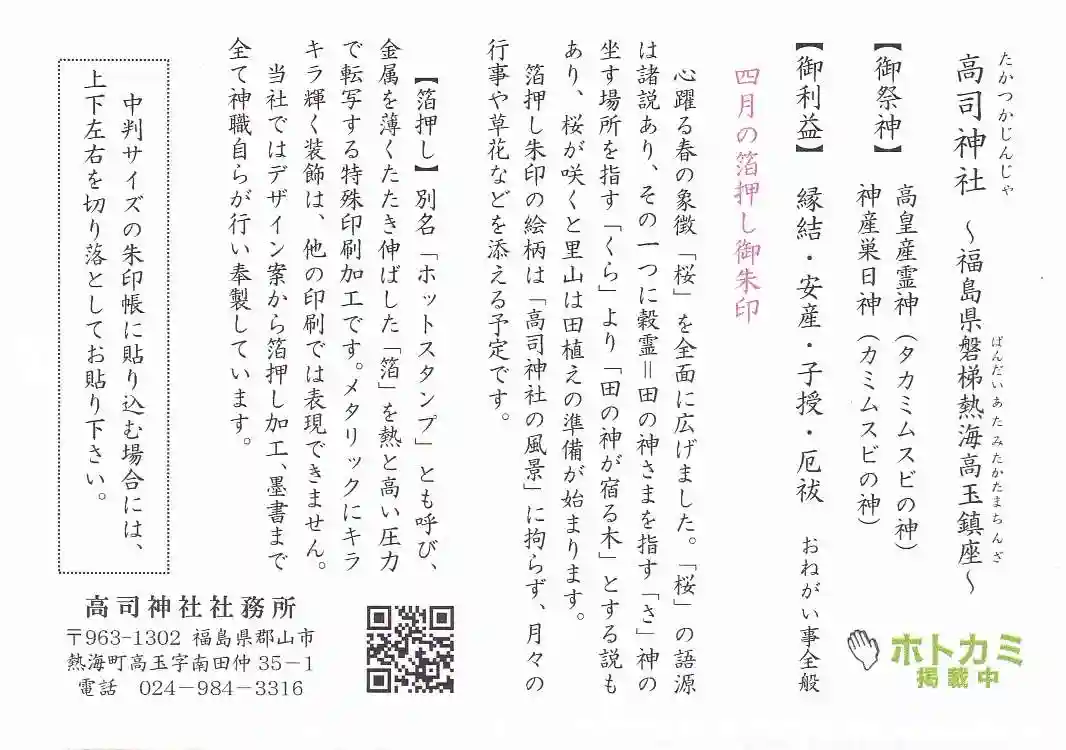 たかつかじんじゃ
高司神社 ～福島県磐梯熱海高玉鎮座～
ばんだいあたみたかたまちんざ
【御祭神】 高皇産霊神（タカミムスビの神）
神産巣日神（カミムスビの神）
【御利益】 縁結・安産・子授・厄祓 おねがい事全般
四月の箔押し御朱印
心躍る春の象徴「桜」を全面に広げました。「桜」の語源
は諸説あり、その一つに穀霊＝田の神さまを指す「さ」神の
坐す場所を指す「くら」より「田の神が宿る木」とする説も
あり、桜が咲くと里山は田植えの準備が始まります。
箔押し朱印の絵柄は「高司神社の風景」に拘らず、月々の
行事や草花などを添える予定です。
【箔押し】別名「ホットスタンプ」とも呼び、
金属を薄くたたき伸ばした「箔」を熱と高い圧力
で転写する特殊印刷加工です。メタリックにキラ
キラ輝く装飾は、他の印刷では表現できません。
当社ではデザイン案から箔押し加工、墨書まで
全て神職自らが行い奉製しています。
中判サイズの朱印帳に貼り込む場合には、
上下左右を切り落としてお貼り下さい。
高司神社社務所
〒963-1302 福島県郡山市
熱海町高玉字南田仲35－1
電話 024-984-3316
ホトカミ
掲載中